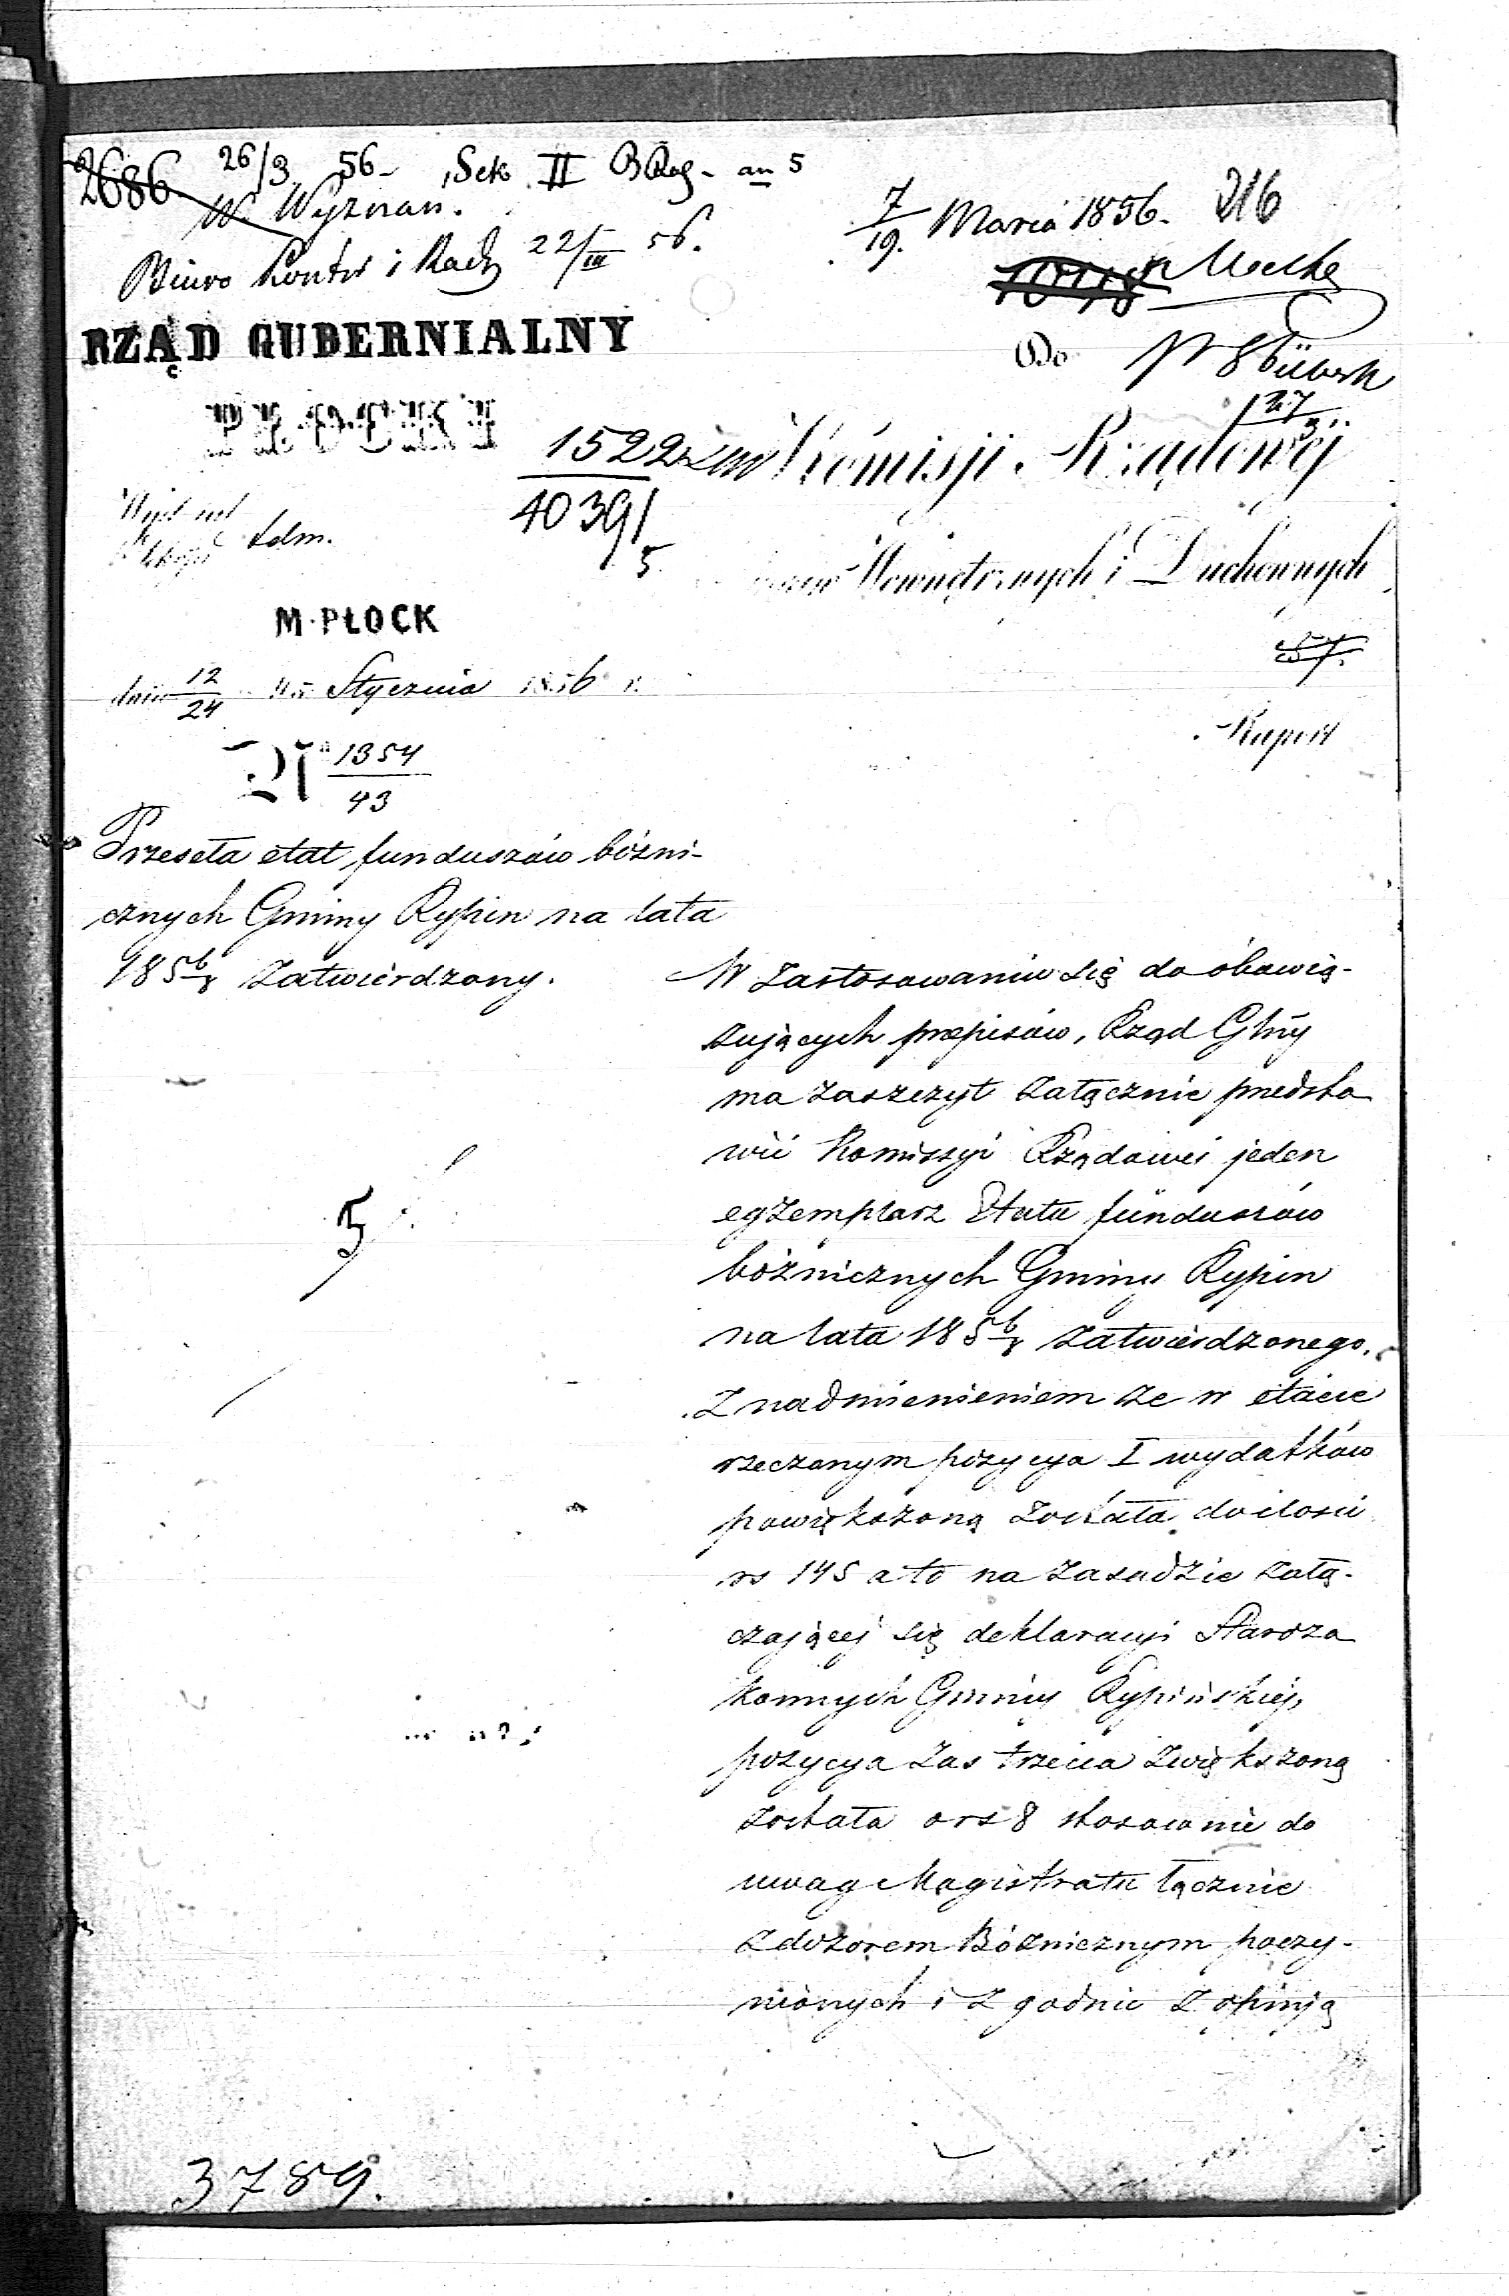 2686 26/3 56 - Sek II B Rag - an 5
W. Wyznan.
Biuro Kontr i Rach 22/III 56.
7/19. Marca 1856. 216
RZĄD GUBERNIALNY
PŁOCKI
Do
27/3
1522
4039/5
Komisji Rządowej
Wewnętrznych i Duchownych
Wydział
Adm.
M. PŁOCK
dnia 12/24 Stycznia 1856 r.
Raport
N 1354/43
Przeseła etat funduszów bóżni-
cznych Gminy Rypin na lata
1856/8 zatwierdzony.
W zastosowaniu się do obowią-
zujących przepisów, Rząd Gblny
ma zaszczyt załącznie przedsta
wić Komissyi Rządowej jeden
egzemplarz Etatu funduszów
bóżnicznych Gminy Rypin
na lata 1856/8 zatwierdzonego.
Z nadmienieniem że w etacie
rzeczonym pozycya I wydatków
powiększoną została do ilości
rs 145 a to na zasadzie załą-
czającej się deklaracyi Staroza
konnych Gminy Rypińskiej,
pozycya zas trzecia zwiększoną
została o rs 8 stosownie do
uwag Magistratu łącznie
z dozorem Bóżnicznym poczy-
nionych i zgodnie z opinją
5
3789.